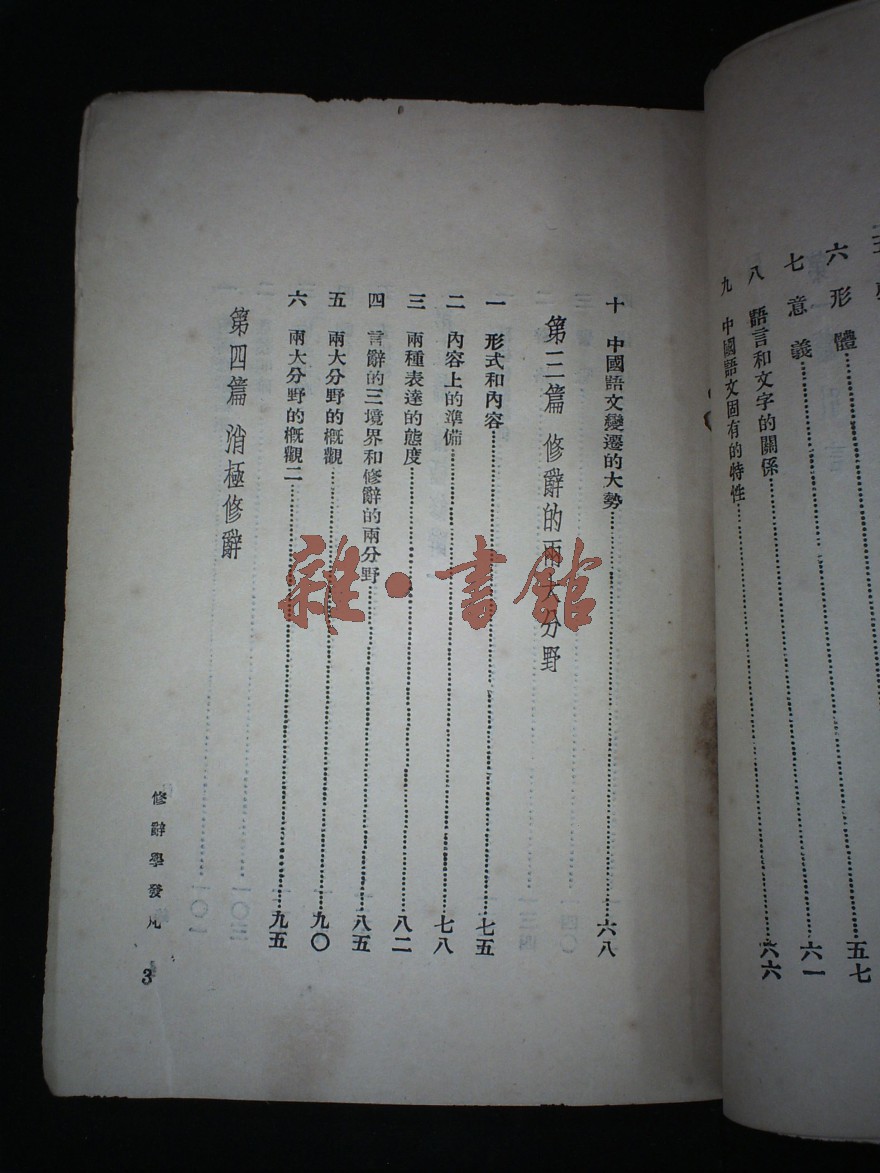 六 形體……五七
七 意義……六一
八 語言和文字的關係
九 中國語文固有的特性……六六
十 中國語文變遷的大勢……六八
第三篇 修辭的兩大分野
一 形式和內容……七五
二 內容上的準備……七八
三 兩種表達的態度……八二
四 言辭的三境界和修辭的兩分野……八五
五 兩大分野的概觀一……九〇
六 兩大分野的概觀二……九五
第四篇 消極修辭
修辭學發凡
3
雜·書館